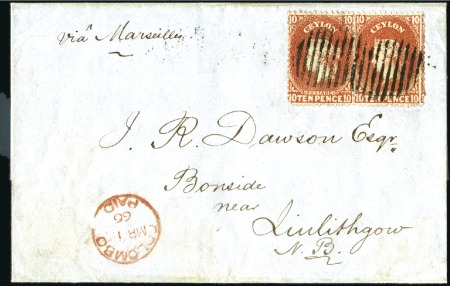 via Marseilles
10 CEYLON 10 10 CEYLON 10
POSTAGE
10 TEN PENCE 10 10 TEN PENCE 10
J. R. Dawson Esqr.
Bonside
near
Linlithgow
N. B.
COLOMBO
PAID
66
MR 1